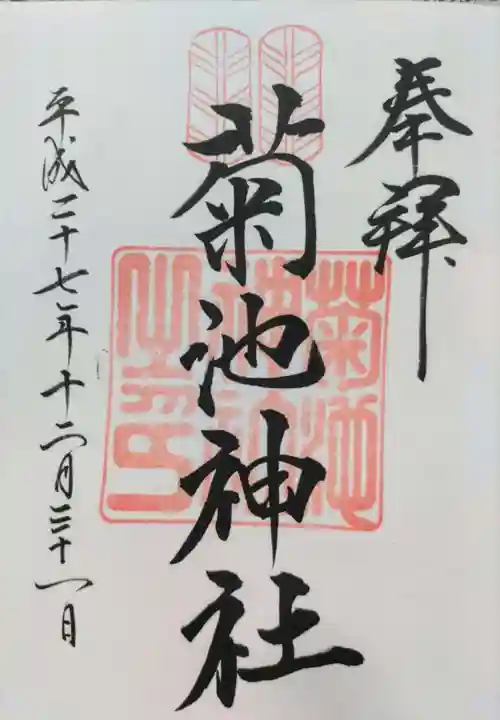 奉拝
菊池神社
菊池神社之印
平成二十七年十二月三十一日